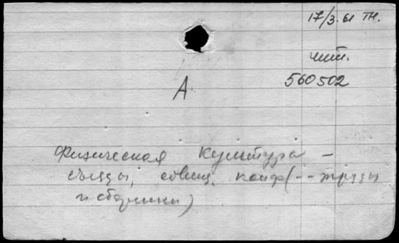 17/3.61 тн.
чит.
560502
А
Физическая культура –
съезды, совещ, конф (-- труды
и сборники)